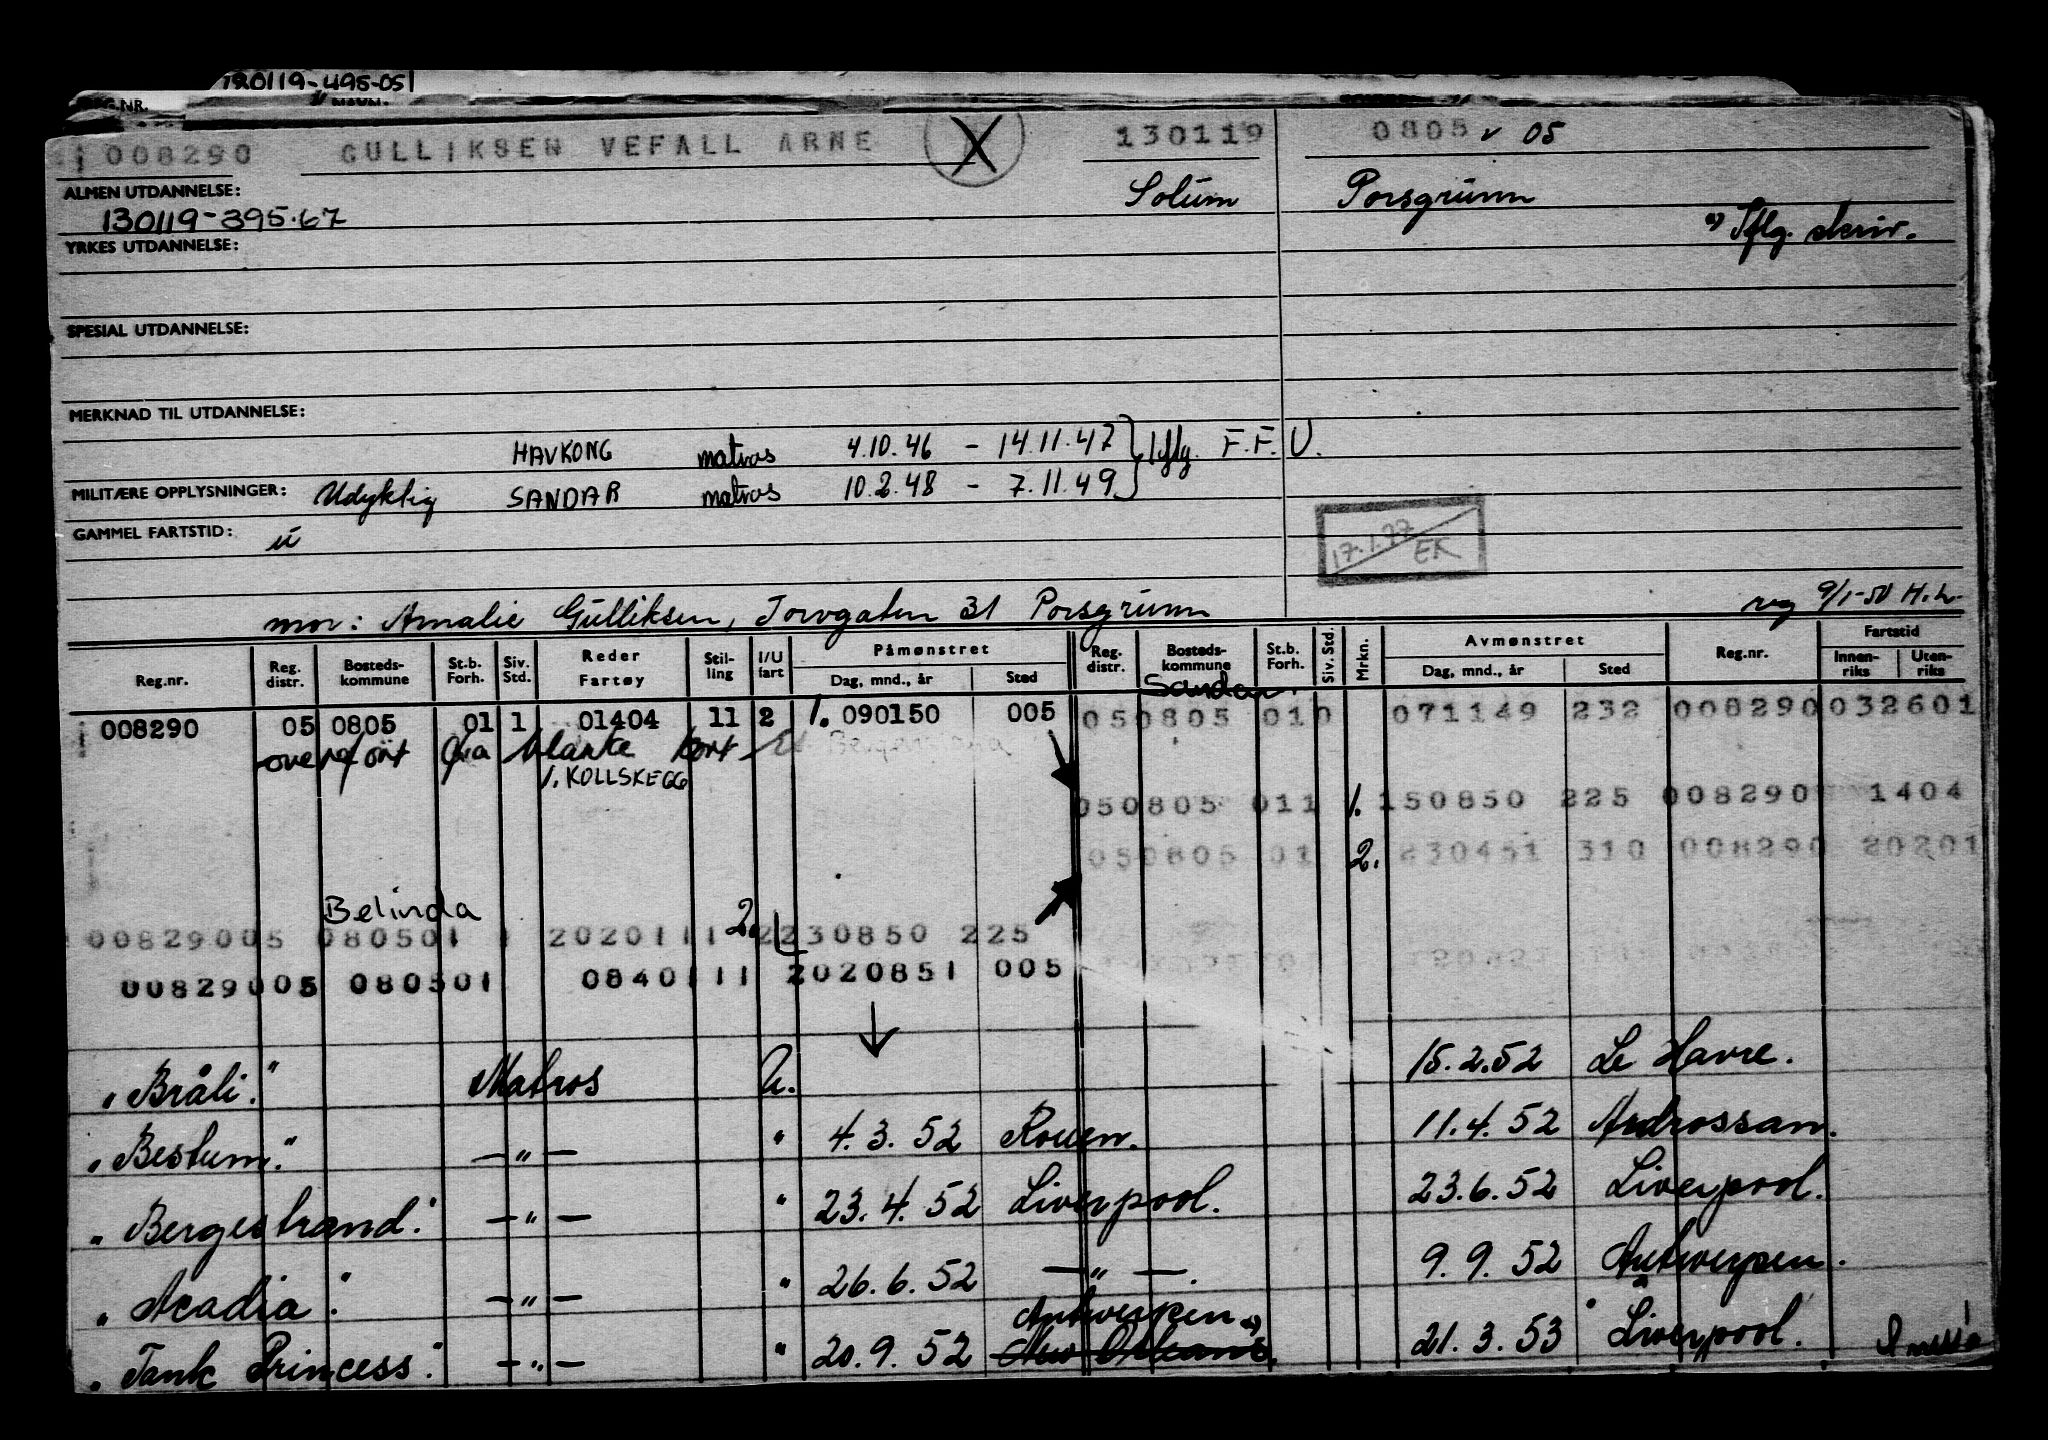 130119-495-05
REG.NR. NAVN.
008290 GULLIKSEN VEFALL ARNE X 130119 0805 v 05
ALMEN UTDANNELSE: Solum Porsgrunn
130119-395.67 Iflg. skriv.
YRKES UTDANNELSE:
SPESIAL UTDANNELSE:
MERKNAD TIL UTDANNELSE:
HAVKONG matros 4.10.46 - 14.11.47 } Iflg. F.F.U.
MILITÆRE OPPLYSNINGER: Udyktig SANDAR matros 10.2.48 - 7.11.49
GAMMEL FARTSTID: u
17.1.77 EK
mor: Amalie Gulliksen, Torvgaten 31 Porsgrunn reg 9/1-50 H.L.
Reg.nr. Reg. distr. Bosteds-kommune St.b. Forh. Siv. Std. Reder Fartøy Stil-ling I/U fart Påmønstret Dag, mnd., år Sted Reg. distr. Bosteds-kommune St.b. Forh. Siv. Std. Mrkn. Avmønstret Dag, mnd., år Sted Reg.nr. Fartstid Innen-riks Uten-riks
Sandar.
008290 05 0805 01 1 01404 11 2 1. 090150 005 050805 010 071149 232 008290 032601
overført fra blanke kort
1. KOLLSKEGG
050805 011 1. 150850 225 008290 1404
050805 01 2. 230451 310 008290 20201
Belinda
00829005 080501 1 2020111 2. 2230850 225
00829005 080501 0840111 2020851 005
"Bråli." Matros U. 15.2.52 Le Havre.
"Bestum." —"— " 4.3.52 Rouen. 11.4.52 Ardrossan.
"Bergestrand." —"— " 23.4.52 Liverpool. 23.6.52 Liverpool.
"Acadia." —"— " 26.6.52 —"—. 9.9.52 Antwerpen.
Antwerpen
"Tank Princess." —"— " 20.9.52 New Orleans. 21.3.53 Liverpool.